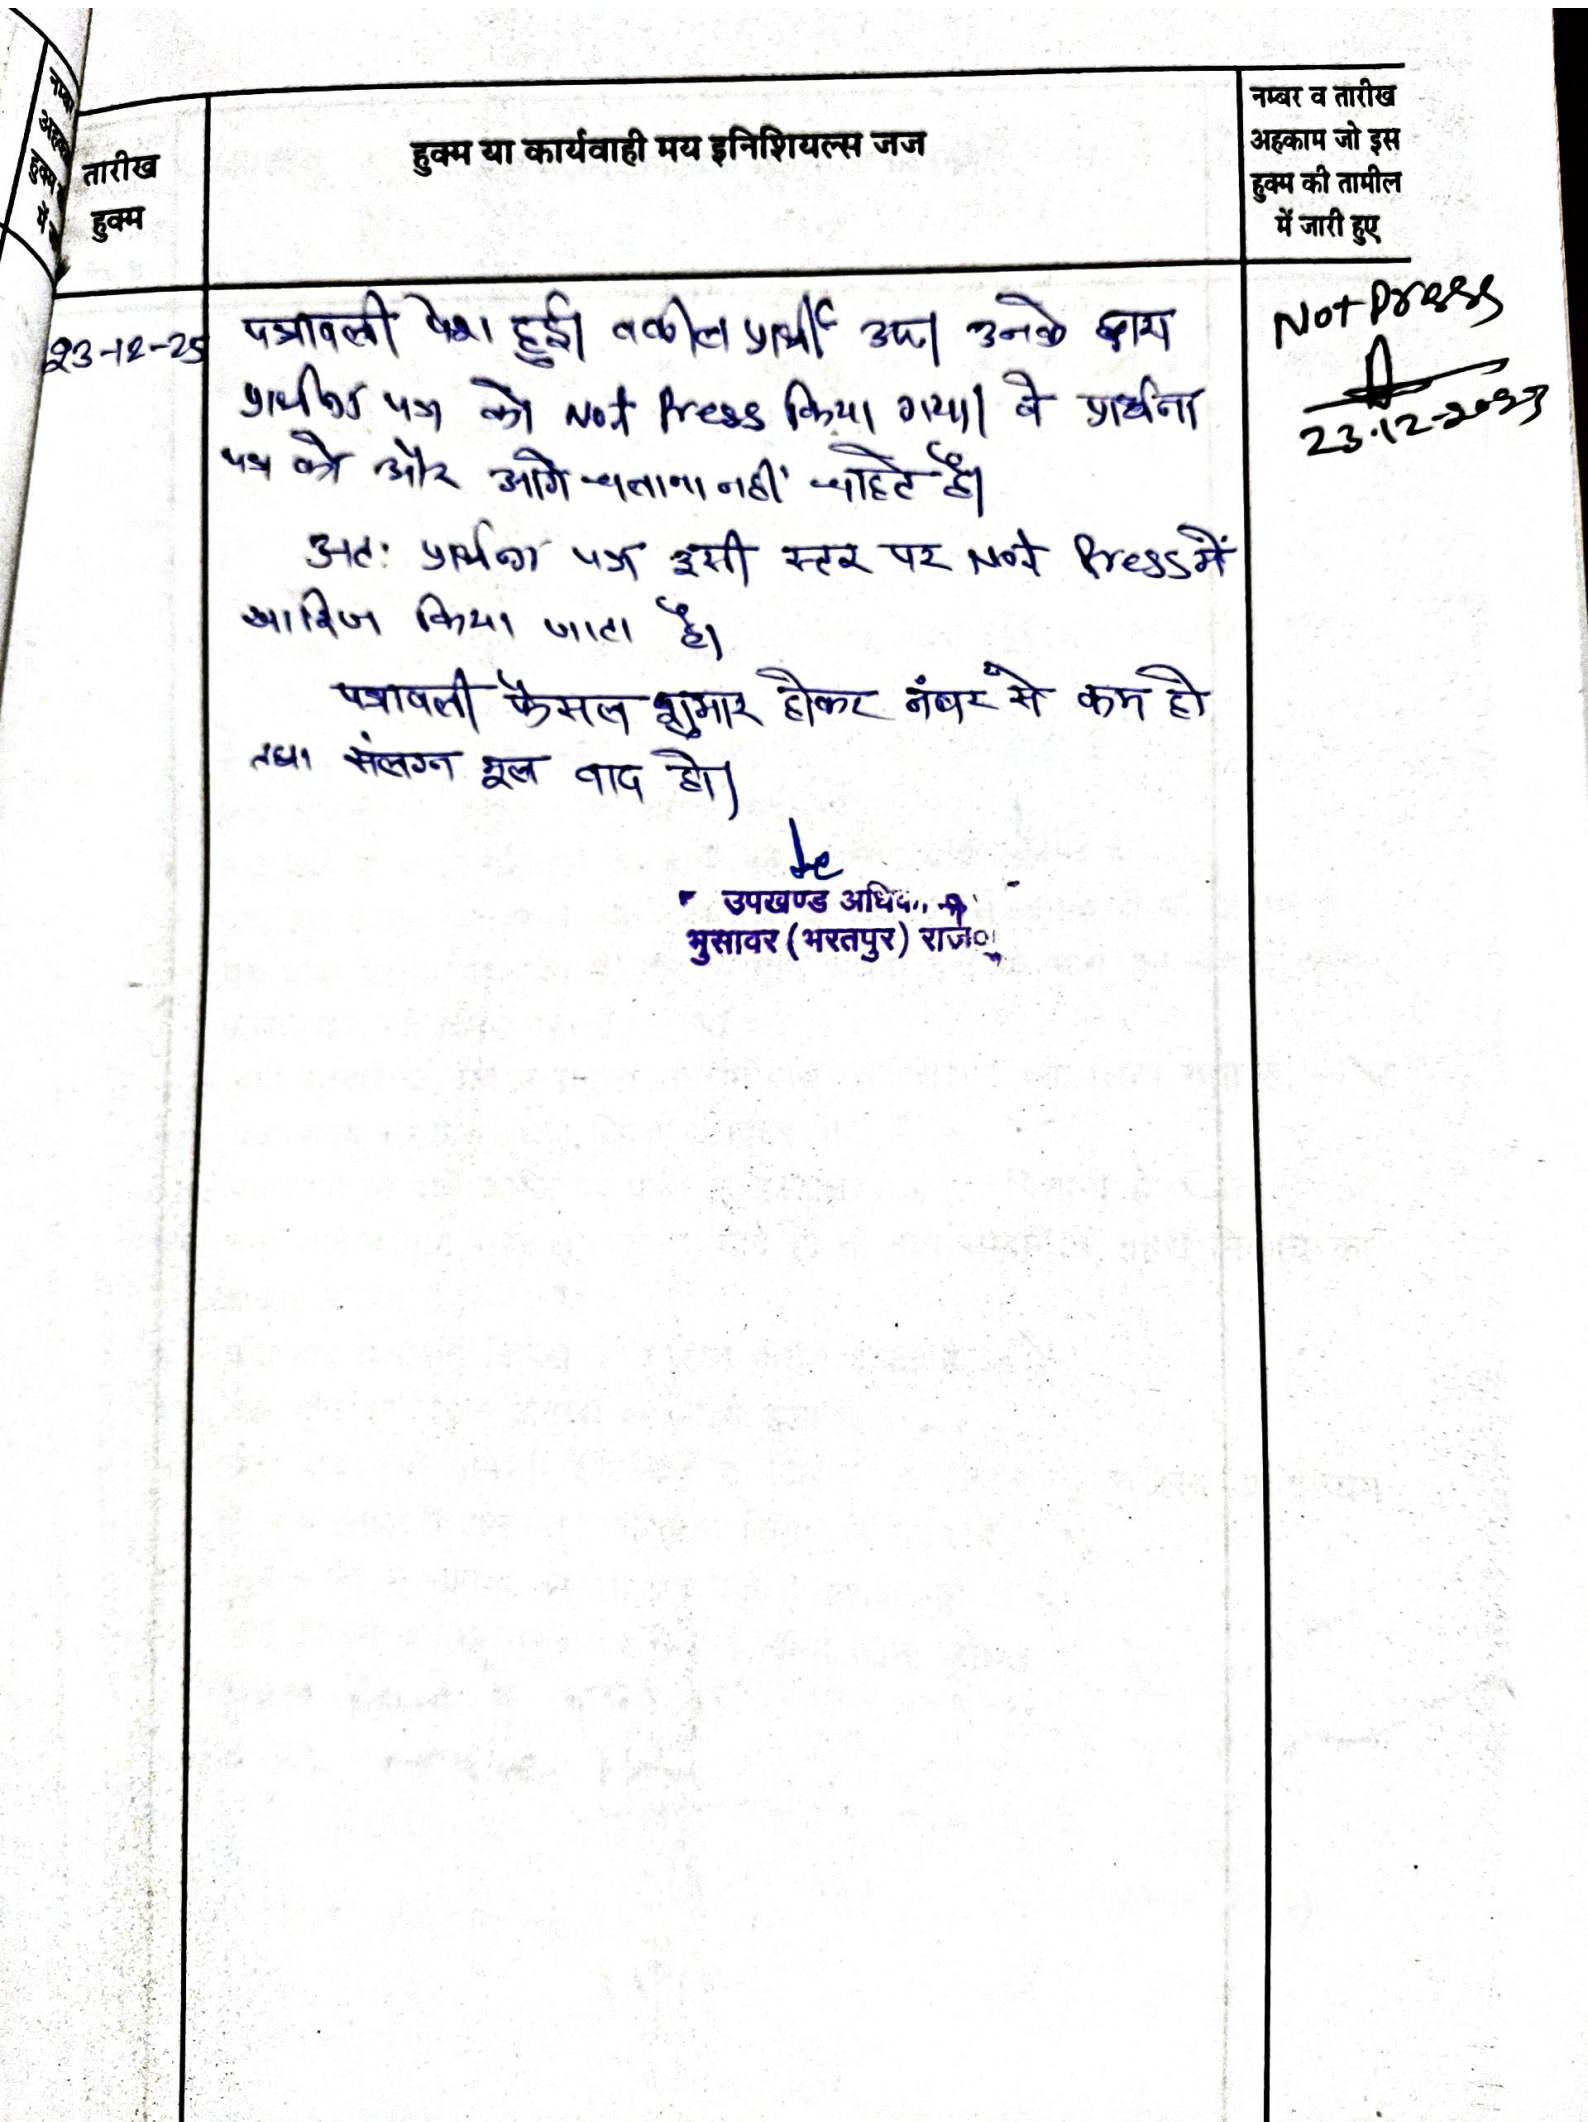 नम्बर
अहकाम
हुक्म
में
तारीख
हुक्म
हुक्म या कार्यवाही मय इनिशियल्स जज
नम्बर व तारीख
अहकाम जो इस
हुक्म की तामील
में जारी हुए
23-12-25
पत्रावली पेश हुई। वकील प्रार्थी उप। उनके द्वारा
प्रार्थना पत्र को Not Press किया गया। वे प्रार्थना
पत्र को और आगे चलाना नहीं चाहते है।
अतः प्रार्थना पत्र इसी स्तर पर Not Press में
खारिज किया जाता है।
पत्रावली फैसल शुमार होकर नंबर से कम हो
तथा संलग्न मूल वाद हो।
उपखण्ड अधिकारी
भुसावर (भरतपुर) राज०
Not Press
23.12.2025